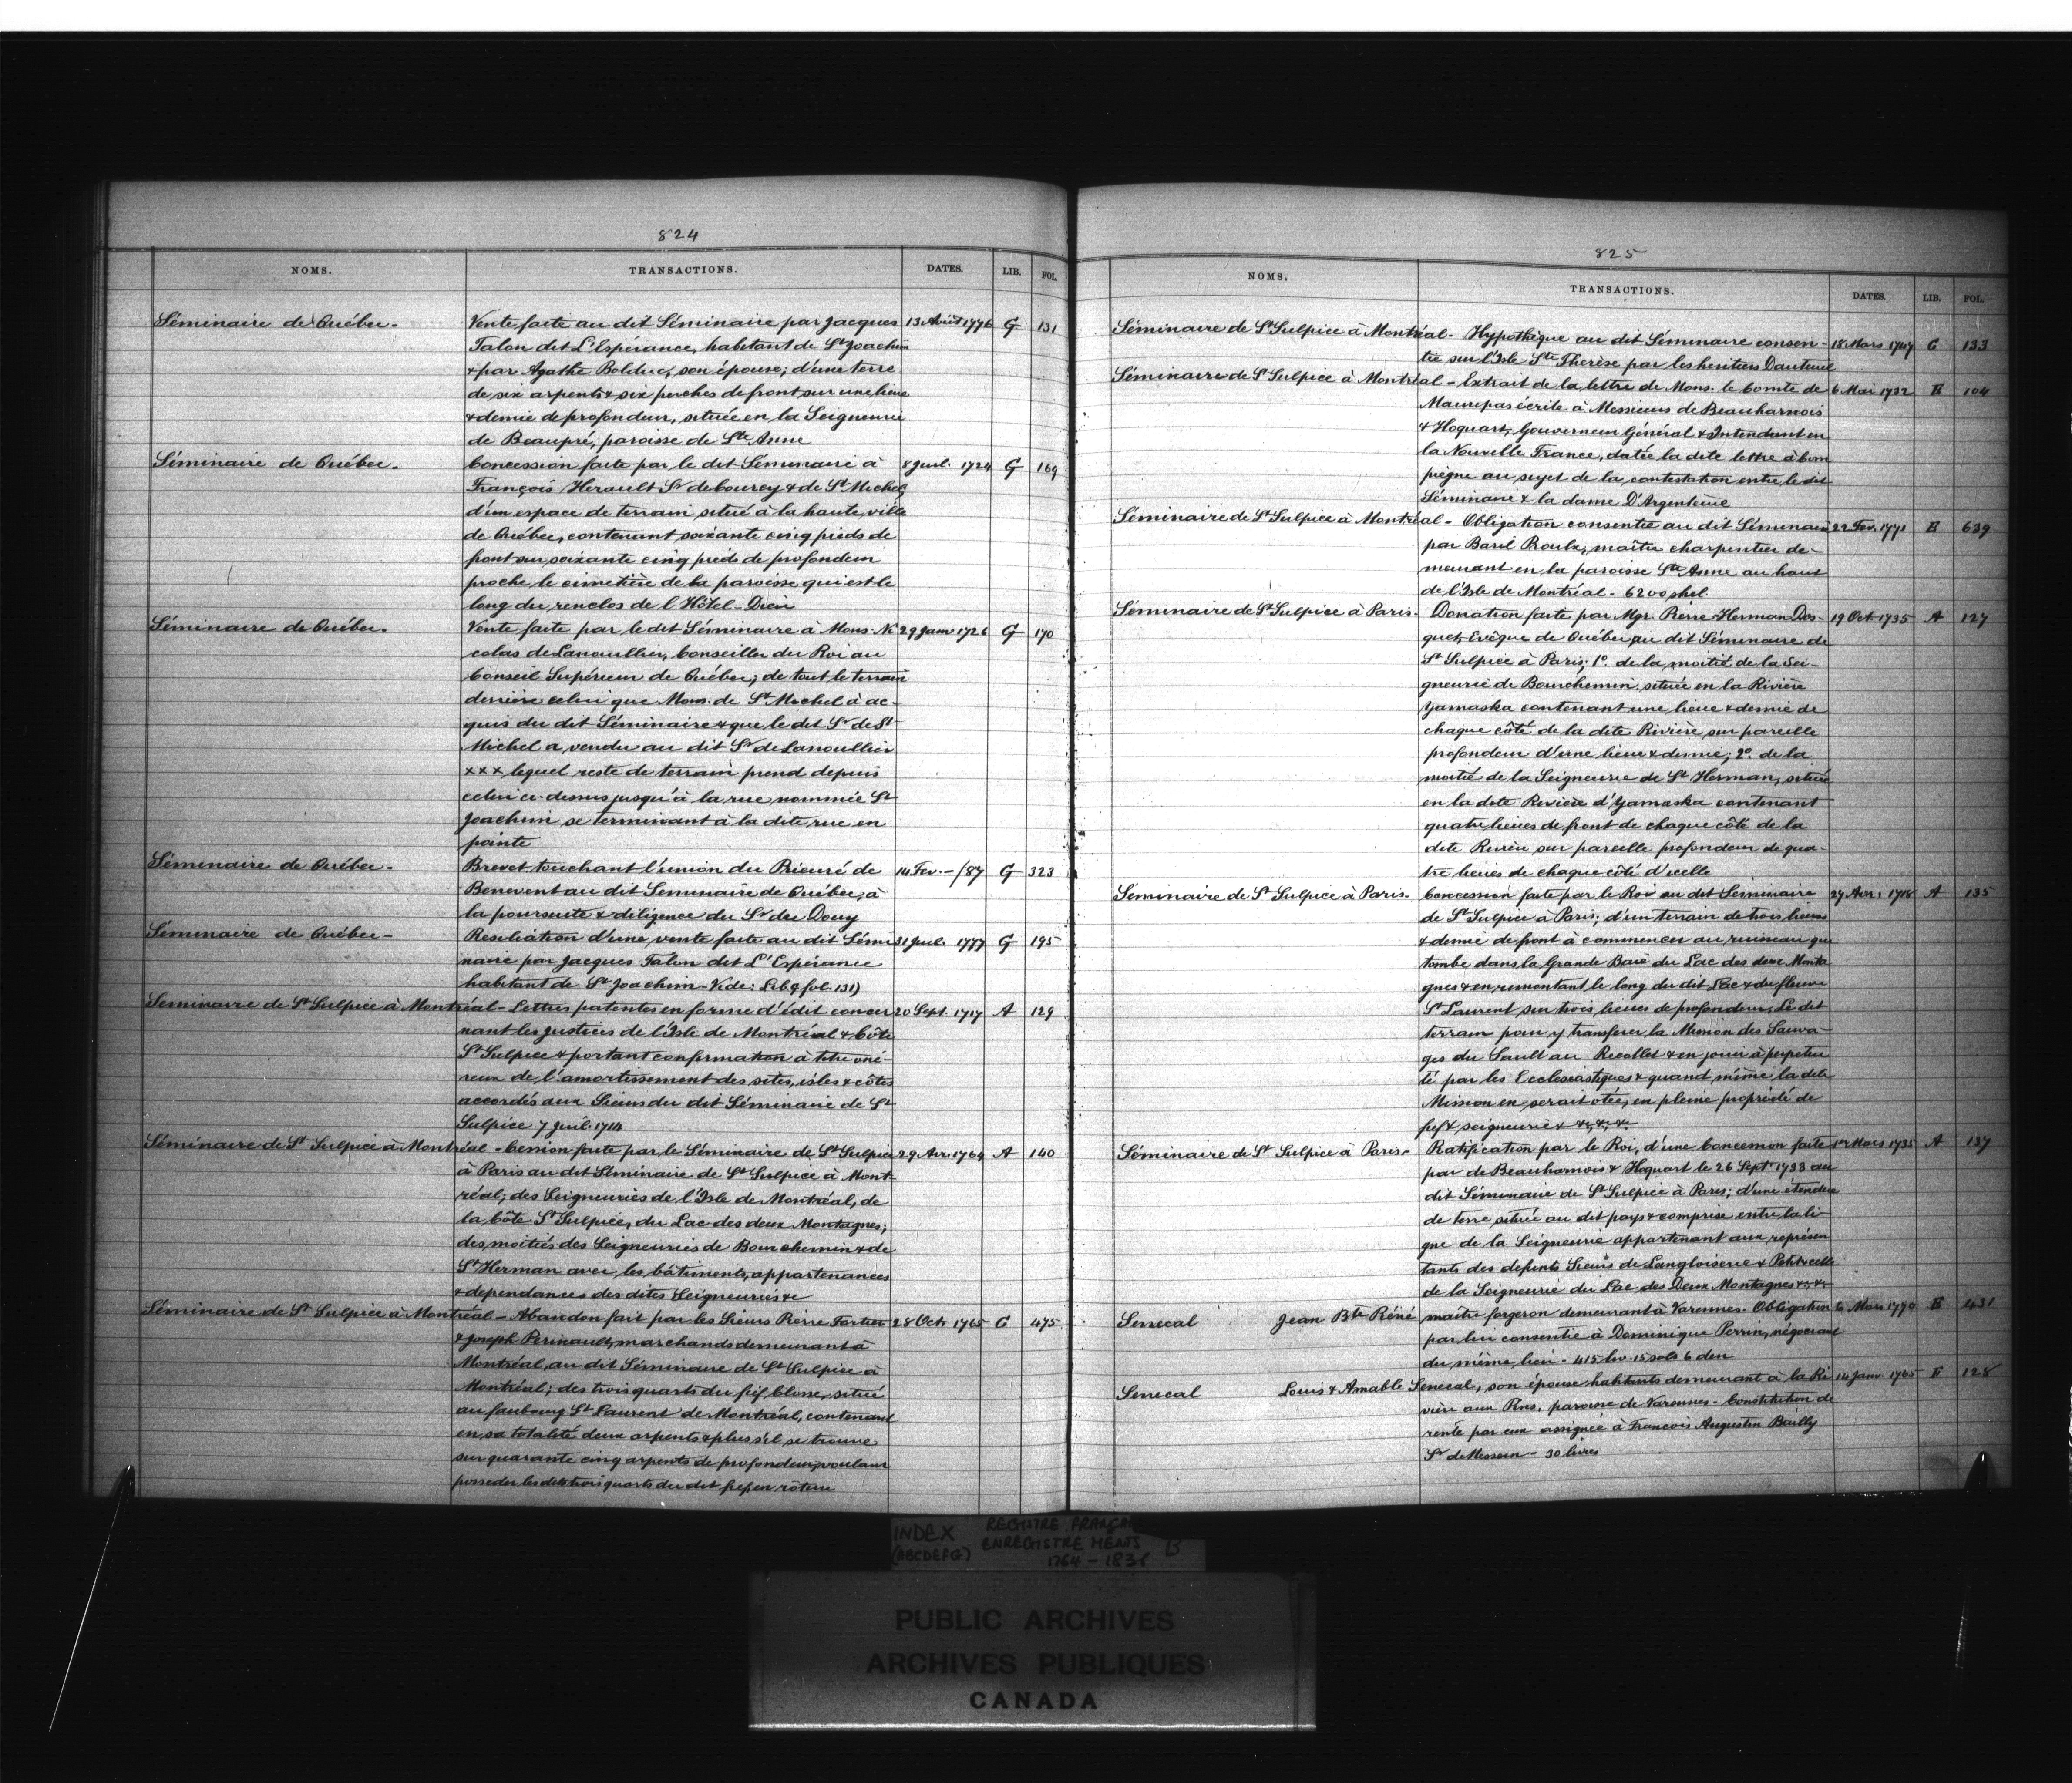 824
NOMS. TRANSACTIONS. DATES. LIB. FOL.
Séminaire de Québec. Vente faite au dit Séminaire par Jacques 13 Août 1776 G 131
Talon dit L'Espérance, habitant de St Joachim
& par Agathe Bolduc, son épouse; d'une terre
de six arpents & six perches de front sur une lieue
& demie de profondeur, située en la Seigneurie
de Beaupré, paroisse de Ste Anne
Séminaire de Québec. Concession faite par le dit Séminaire à 8 Juil. 1724 G 169
François Herault Sr de Gourcy & de St Michel,
d'un espace de terrain situé à la haute ville
de Québec, contenant soixante cinq pieds de
front sur soixante cinq pieds de profondeur
proche le cimetière de la paroisse qui est le
long du renclos de l'Hôtel-Dieu
Séminaire de Québec. Vente faite par le dit Séminaire à Mons. Ni 29 Janv 1726 G 170
colas de Lanoullier, Conseiller du Roi au
Conseil Supérieur de Québec; de tout le terrain
derrière celui que Mons. de St Michel à ac-
quis du dit Séminaire & que le dit Sr de St
Michel a vendu au dit Sr de Lanoullier
xxx lequel reste de terrain prend depuis
celui ci-dessus jusqu'à la rue nommée St
Joachim se terminant à la dite rue en
pointe
Séminaire de Québec. Brevet touchant l'union du Prieuré de 14 Fev. - /87 G 323
Benevent au dit Seminaire de Québec, à
la poursuite & diligence du Sr du Douy
Séminaire de Québec - Resiliation d'une vente faite au dit Sémi 31 Juil. 1777 G 195
naire par Jacques Talon dit L'Espérance
habitant de St Joachim - Vide: Lib. G fol. 131)
Seminaire de St Sulpice à Montréal - Lettres patentes en forme d'édit concer 20 Sept. 1717 A 129
nant les justices de l'Isle de Montréal & Côte
St Sulpice & portant confirmation à titre oné-
reux de l'amortissement des sites, isles & côtes
accordés aux Sieurs du dit Séminaire de St
Sulpice 7 Juil. 1714
Séminaire de St Sulpice à Montréal - Cession faite par le Séminaire de St Sulpice 29 Avr. 1764 A 140
à Paris au dit Séminaire de St Sulpice à Mont-
réal; des Seigneuries de l'Isle de Montréal, de
la Côte St Sulpice, du Lac des deux Montagnes;
des moitiés des Seigneuries de Bourchemin & de
St Herman avec les bâtiments, appartenances
& dependances des dites Seigneuries &c
Séminaire de St Sulpice à Montréal - Abandon fait par les Sieurs Pierre Fortier 28 Oct. 1765 C 475
& Joseph Perinault, marchands demeurant à
Montréal, au dit Séminaire de St Sulpice à
Montréal; des trois quarts du fief Closse, situé
au faubourg St Laurent de Montréal, contenant
en sa totalité deux arpents & plus s'il se trouve
sur quarante cinq arpents de profondeur, voulant
posseder les dits trois quarts du dit fief en rôture
825
NOMS. TRANSACTIONS. DATES. LIB. FOL.
Séminaire de St Sulpice à Montréal - Hypothèque au dit Séminaire consen- 18 Mars 1747 C 133
tie sur l'Isle Ste Therèse par les heritiers Dauteuil
Séminaire de St Sulpice à Montréal - Extrait de la lettre de Mons. le Comte de 6 Mai 1732 E 104
Maurepas écrite à Messieurs de Beauharnois
& Hoquart, Gouverneur Général & Intendant en
la Nouvelle France, datée la dite lettre à Com
piègne au sujet de la contestation entre le dit
Séminaire & la dame D'Argenteuil
Séminaire de St Sulpice à Montréal - Obligation consentie au dit Séminaire 22 Fev. 1771 E 639
par Basil Proulx, maître charpentier de-
meurant en la paroisse Ste Anne au haut
de l'Isle de Montréal - 6200 shel.
Séminaire de St Sulpice à Paris - Donation faite par Mgr. Pierre Herman Dos- 19 Oct. 1735 A 127
quet, Evêque de Québec au dit Séminaire de
St Sulpice à Paris; 1o. de la moitié de la Sei-
gneurie de Bourchemin, située en la Rivière
Yamaska contenant une lieue & demie de
chaque côté de la dite Rivière, sur pareille
profondeur d'une lieue & demie; 2o. de la
moitié de la Seigneurie de St Herman, située
en la dite Rivière d'Yamaska contenant
quatre lieues de front de chaque côté de la
dite Rivière sur pareille profondeur de qua-
tre lieues de chaque côté d'icelle
Séminaire de St Sulpice à Paris. Concession faite par le Roi au dit Séminaire 27 Avr. 1718 A 135
de St Sulpice à Paris; d'un terrain de trois lieues
& demie de front à commencer au ruisseau qui
tombe dans la Grande Baie du Lac des deux Monta
gnes & en remontant le long du dit Lac & du fleuve
St Laurent sur trois lieues de profondeur, Le dit
terrain pour y transferer la Mission des Sauva-
ges du Sault au Recollet & en jouir à perpetui
té par les Ecclesiastiques & quand même la dite
Mission en serait otée, en pleine propriété de
fief & seigneurie & &c &c
Séminaire de St Sulpice à Paris. Ratification par le Roi, d'une Concession faite 1er Mars 1735 A 137
par de Beauharnois & Hoquart le 26 Septr 1733 au
dit Séminaire de St Sulpice à Paris; d'une étendue
de terre située au dit pays & comprise entre la li
gne de la Seigneurie appartenant aux représen
tants des defunts Sieurs de Langloiserie & Petit & celle
de la Seigneurie du Lac des Deux Montagnes &c &c
Senecal Jean Bte Réné maître forgeron demeurant à Varennes. Obligation 6 Mars 1770 E 431
par lui consentie à Dominique Perrin, négociant
du même lieu - 415 liv. 15 sols 6 den
Senecal Louis & Amable Senecal, son épouse habitants demeurant à la Ri 14 Janv. 1765 E 128
vière aux Pins, paroisse de Varennes - Constitution de
rente par eux assignée à Francois Augustin Bailly
Sr de Messein - 30 livres
INDEX (ABCDEFG) REGISTRE FRANÇAIS ENREGISTREMENTS B 1764 - 1836
PUBLIC ARCHIVES
ARCHIVES PUBLIQUES
CANADA